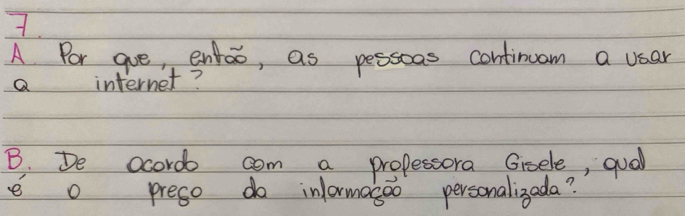 7.
A Por que, então, as pessoas continuam a usar
a internet?
B. De acordo com a professora Gisele, qual
é o preso da informação personalizada?